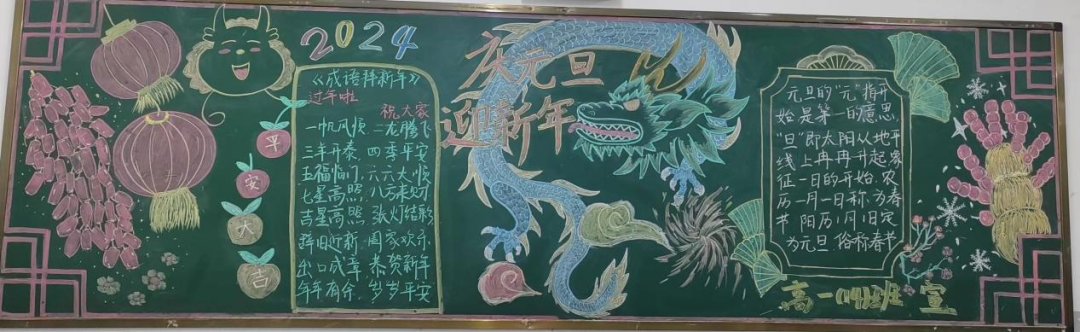 2024
庆元旦
迎新年
《成语拜新年》
过年啦
祝大家
一帆风顺 二龙腾飞
三羊开泰 四季平安
五福临门 六六大顺
七星高照 八方来财
吉星高照 张灯结彩
辞旧迎新 阖家欢乐
出口成章 恭贺新年
年年有余 岁岁平安
平
安
大
吉
元旦的"元"指开
始是第一的意思
"旦"即太阳从地平
线上冉冉升起象
征一日的开始农
历一月一日称为春
节阳历1月1日定
为元旦俗称春节
高一 班 宣